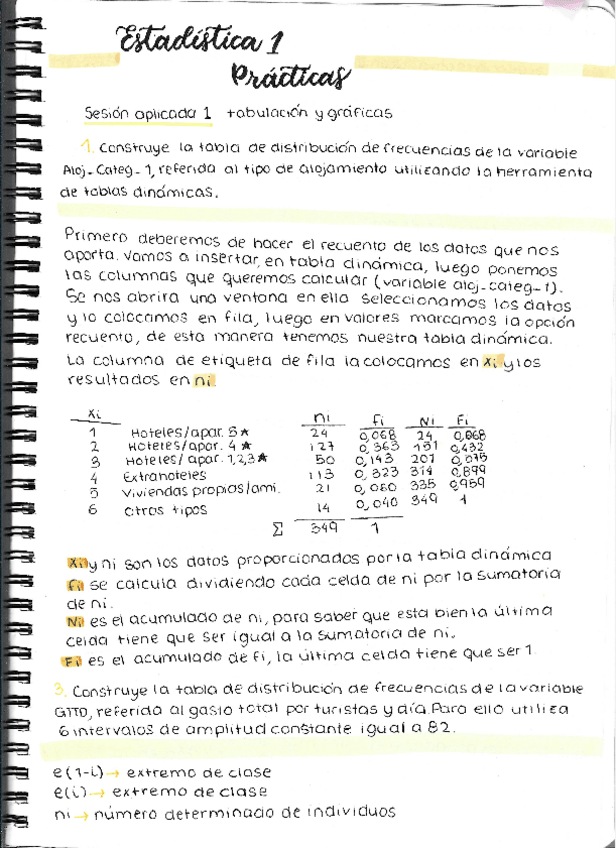 Estadística 1
Prácticas
Sesión aplicada 1 tabulación y gráficas
1. Construye la tabla de distribución de frecuencias de la variable
Aloj-Categ-1, referida al tipo de alojamiento utilizando la herramienta
de tablas dinámicas.
Primero deberemos de hacer el recuento de los datos que nos
aporta. Vamos a insertar, en tabla dinámica, luego ponemos
las columnas que queremos calcular (variable aloj-categ-1).
Se nos abrira una ventana en ella seleccionamos los datos
y lo colocamos en fila, luego en valores marcamos la opción
recuento, de esta manera tenemos nuestra tabla dinámica.
La columna de etiqueta de fila la colocamos en xi y los
resultados en ni.
Xi ni fi Ni Fi
1 Hoteles/apar. 5★ 24 0,068 24 0,068
2 Hoteles/apar. 4★ 127 0,363 151 0,432
3 Hoteles/apar. 1,2,3★ 50 0,143 201 0,575
4 Extranoteles 113 0,323 314 0,899
5 Viviendas propios/ami. 21 0,060 335 0,959
6 Otros tipos 14 0,040 349 1
Σ 349 1
Xi y ni son los datos proporcionados por la tabla dinámica
fi se calcula dividiendo cada celda de ni por la sumatoria
de ni.
Ni es el acumulado de ni, para saber que esta bien la última
celda tiene que ser igual a la sumatoria de ni.
Fi es el acumulado de fi, la última celda tiene que ser 1
3. Construye la tabla de distribución de frecuencias de la variable
GTTD, referida al gasto total por turistas y día. Para ello utiliza
6 intervalos de amplitud constante igual a 82.
e(1-i) → extremo de clase
e(i) → extremo de clase
ni → número determinado de individuos